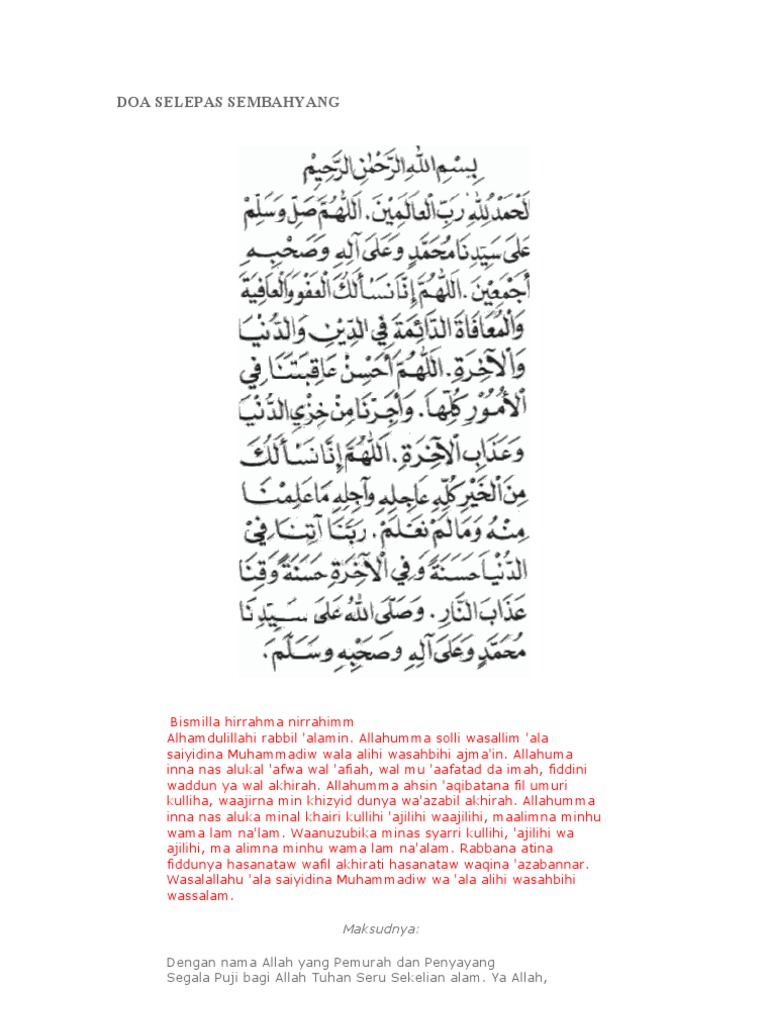 DOA SELEPAS SEMBAHYANG
بِسْمِ اللهِ الرَّحْمٰنِ الرَّحِيْمِ
لْحَمْدُ لِلّٰهِ رَبِّ الْعَالَمِيْنَ. اَللّٰهُمَّ صَلِّ وَسَلِّمْ
عَلَى سَيِّدِنَا مُحَمَّدٍ وَعَلَى آلِهِ وَصَحْبِهِ
أَجْمَعِيْنَ. اَللّٰهُمَّ إِنَّا نَسْأَلُكَ الْعَفْوَ وَالْعَافِيَةَ
وَالْمُعَافَاةَ الدَّائِمَةَ فِي الدِّيْنِ وَالدُّنْيَا
وَالْآخِرَةِ. اَللّٰهُمَّ أَحْسِنْ عَاقِبَتَنَا فِي
الْأُمُوْرِ كُلِّهَا. وَأَجِرْنَا مِنْ خِزْيِ الدُّنْيَا
وَعَذَابِ الْآخِرَةِ. اَللّٰهُمَّ إِنَّا نَسْأَلُكَ
مِنَ الْخَيْرِ كُلِّهِ عَاجِلِهِ وَآجِلِهِ مَا عَلِمْنَا
مِنْهُ وَمَا لَمْ نَعْلَمْ. رَبَّنَا آتِنَا فِيْ
الدُّنْيَا حَسَنَةً وَفِي الْآخِرَةِ حَسَنَةً وَقِنَا
عَذَابَ النَّارِ. وَصَلَّى اللهُ عَلَى سَيِّدِنَا
مُحَمَّدٍ وَعَلَى آلِهِ وَصَحْبِهِ وَسَلَّمَ.
Bismilla hirrahma nirrahimm
Alhamdulillahi rabbil 'alamin. Allahumma solli wasallim 'ala
saiyidina Muhammadiw wala alihi wasahbihi ajma'in. Allahuma
inna nas alukal 'afwa wal 'afiah, wal mu 'aafatad da imah, fiddini
waddun ya wal akhirah. Allahumma ahsin 'aqibatana fil umuri
kulliha, waajirna min khizyid dunya wa'azabil akhirah. Allahumma
inna nas aluka minal khairi kullihi 'ajilihi waajilihi, maalimna minhu
wama lam na'lam. Waanuzubika minas syarri kullihi, 'ajilihi wa
ajilihi, ma alimna minhu wama lam na'alam. Rabbana atina
fiddunya hasanataw wafil akhirati hasanataw waqina 'azabannar.
Wasalallahu 'ala saiyidina Muhammadiw wa 'ala alihi wasahbihi
wassalam.
Maksudnya:
Dengan nama Allah yang Pemurah dan Penyayang
Segala Puji bagi Allah Tuhan Seru Sekelian alam. Ya Allah,